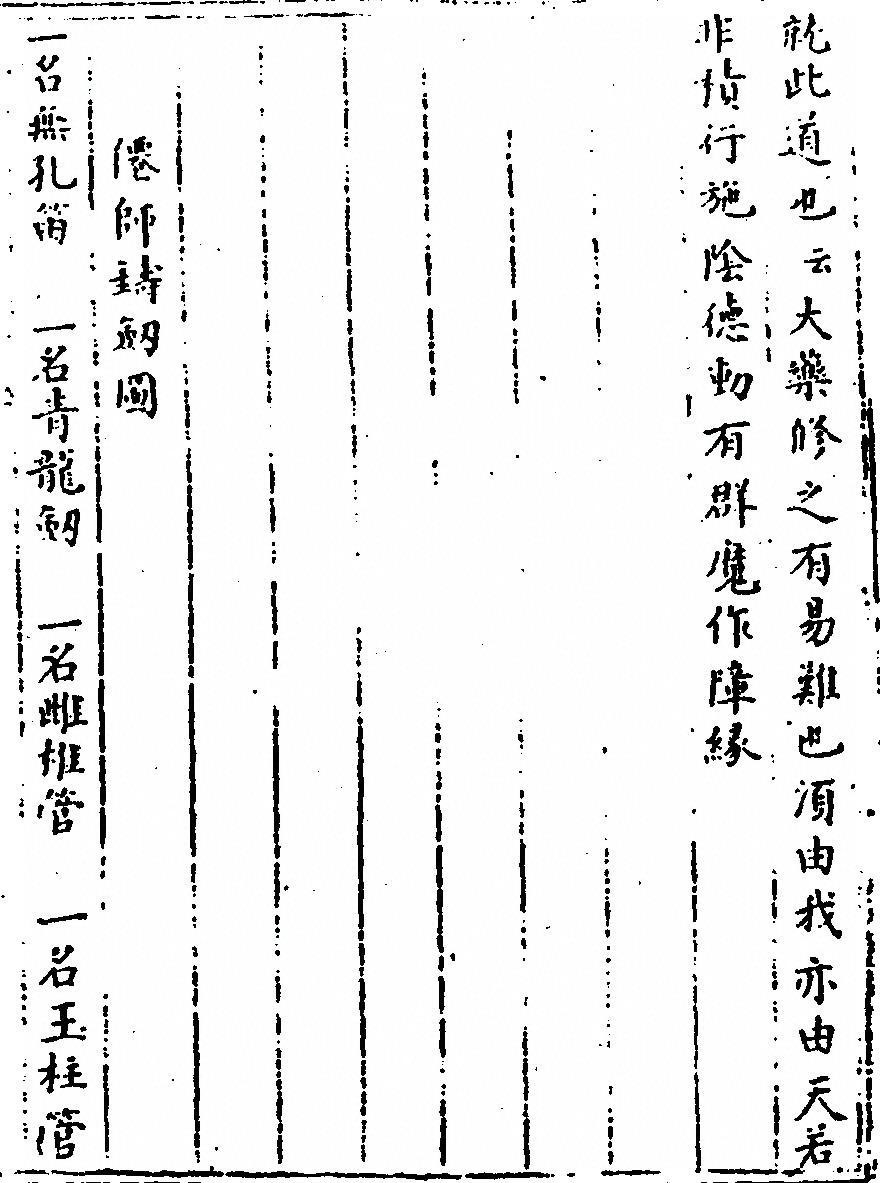 就此道也云大藥修之有易難也湏由我亦由天若
非積行施陰德動有群魔作障緣
僊師鑄劔圖
一名無孔笛 一名青龍劔 一名雌雄管 一名玉柱管